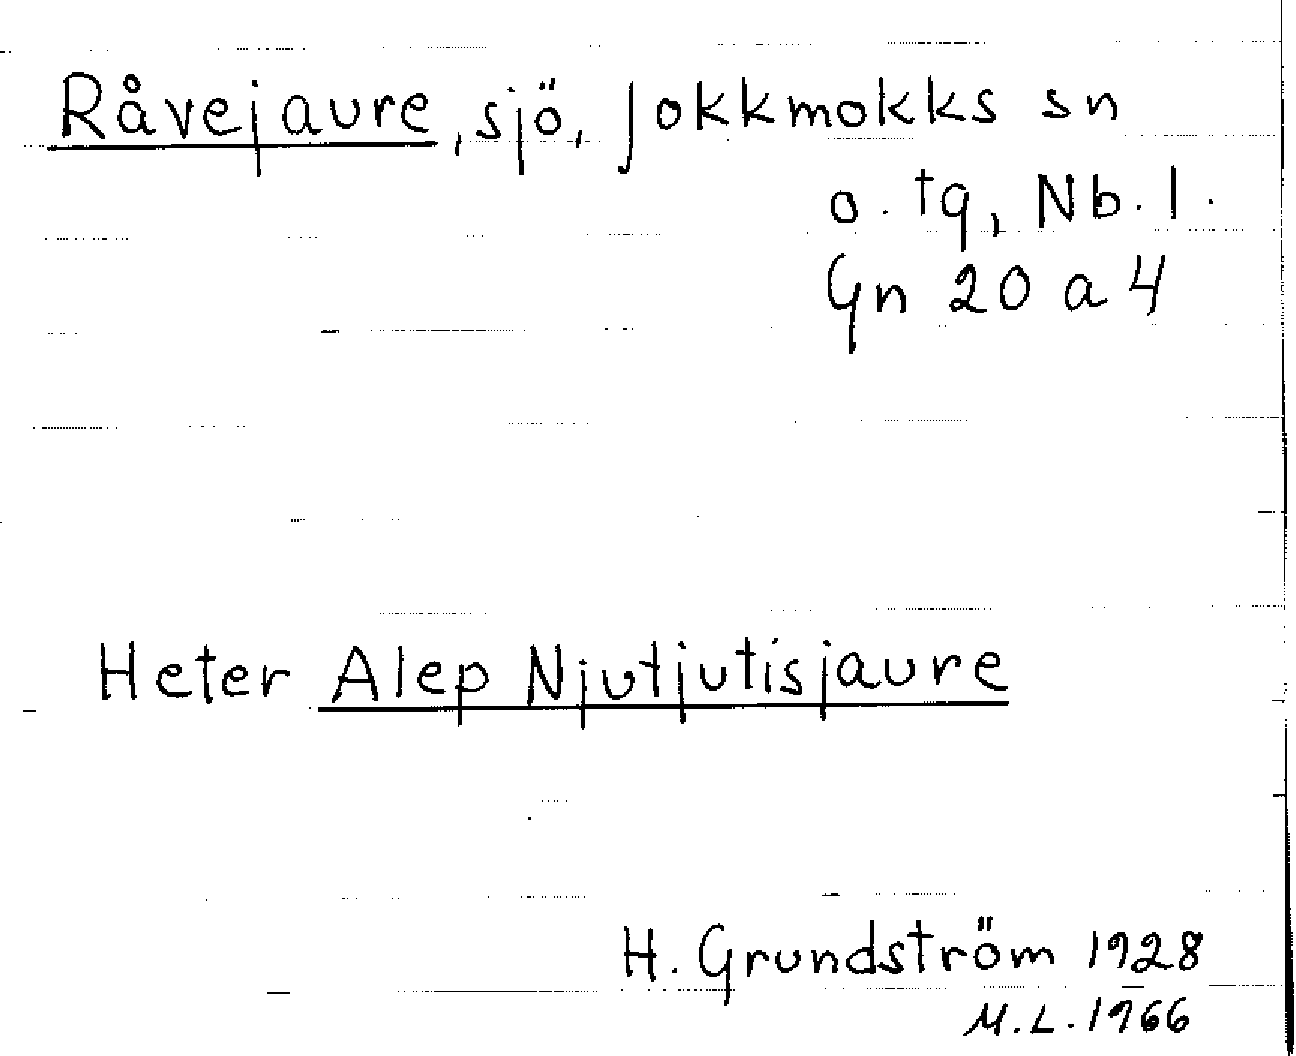 Råvejaure, sjö, Jokkmokks sn
o. tg, Nb. l.
Gn 20 a 4
Heter Alep Njutjutisjaure
H. Grundström 1928
M.L. 1966